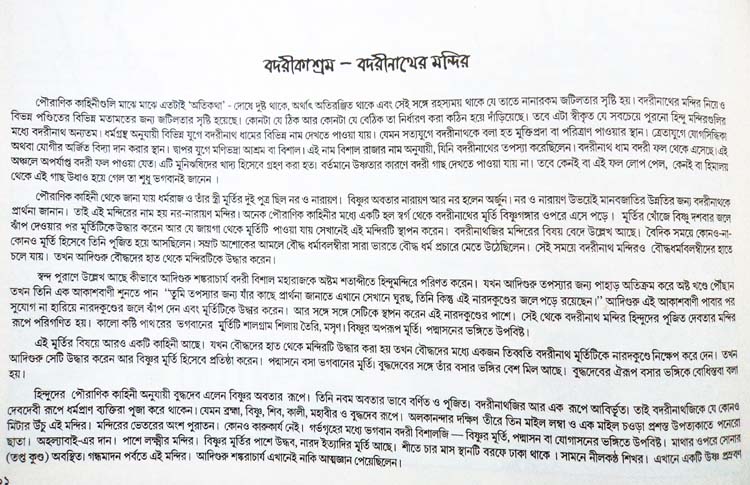 বদরীকাশ্রম – বদরীনাথের মন্দির
পৌরাণিক কাহিনীগুলি মাঝে মাঝে এতটাই ‘অতিকথা’ - দোষে দুষ্ট থাকে, অর্থাৎ অতিরঞ্জিত থাকে এবং সেই সঙ্গে রহস্যময় থাকে যে তাতে নানারকম জটিলতার সৃষ্টি হয়। বদরীনাথের মন্দির নিয়েও
বিভিন্ন পণ্ডিতের বিভিন্ন মতামতের জন্য জটিলতার সৃষ্টি হয়েছে। কোনটা যে ঠিক আর কোনটা যে বেঠিক তা নির্ধারণ করা কঠিন হয়ে দাঁড়িয়েছে। তবে এটা স্বীকৃত যে সবচেয়ে পুরনো হিন্দু মন্দিরগুলির
মধ্যে বদরীনাথ অন্যতম। ধর্মগ্রন্থ অনুযায়ী বিভিন্ন যুগে বদরীনাথ ধামের বিভিন্ন নাম দেখতে পাওয়া যায়। যেমন সত্যযুগে বদরীনাথকে বলা হত মুক্তিপ্রদা বা পরিত্রাণ পাওয়ার স্থান। ত্রেতাযুগে যোগসিদ্ধিকা
অথবা যোগীর অর্জিত বিদ্যা দান করার স্থান। দ্বাপর যুগে মণিভদ্রা আশ্রম বা বিশাল। এই নাম বিশাল রাজার নাম অনুযায়ী, যিনি বদরীনাথের তপস্যা করেছিলেন। বদরীনাথ ধাম বদরী ফল থেকে এসেছে। এই
অঞ্চলে অপর্যাপ্ত বদরী ফল পাওয়া যেত। এটি মুনিঋষিদের খাদ্য হিসেবে গ্রহণ করা হত। বর্তমানে উষ্ণতার কারণে বদরী গাছ দেখতে পাওয়া যায় না। তবে কেনই বা এই ফল লোপ পেল, কেনই বা হিমালয়
থেকে এই গাছ উধাও হয়ে গেল তা শুধু ভগবানই জানেন ।
পৌরাণিক কাহিনী থেকে জানা যায় ধর্মরাজ ও তাঁর স্ত্রী মূর্তির দুই পুত্র ছিল নর ও নারায়ণ। বিষ্ণুর অবতার নারায়ণ আর নর হলেন অর্জুন। নর ও নারায়ণ উভয়েই মানবজাতির উন্নতির জন্য বদরীনাথকে
প্রার্থনা জানান। তাই এই মন্দিরের নাম হয় নর-নারায়ণ মন্দির। অনেক পৌরাণিক কাহিনীর মধ্যে একটি হল স্বর্গ থেকে বদরীনাথের মূর্তি বিষ্ণুগঙ্গার ওপরে এসে পড়ে। মূর্তির খোঁজে বিষ্ণু দশবার জলে
ঝাঁপ দেওয়ার পর মূর্তিটিকে উদ্ধার করেন আর যে জায়গা থেকে মূর্তিটি পাওয়া যায় সেখানেই এই মন্দিরটি স্থাপন করেন। বদরীনাথজির মন্দিরের বিষয় বেদে উল্লেখ আছে। বৈদিক সময়ে কোনও-না-
কোনও মূর্তি হিসেবে তিনি পূজিত হয়ে আসছিলেন। সম্রাট অশোকের আমলে বৌদ্ধ ধর্মাবলম্বীরা সারা ভারতে বৌদ্ধ ধর্ম প্রচারে মেতে উঠেছিলেন। সেই সময়ে বদরীনাথ মন্দিরও বৌদ্ধধর্মাবলম্বীদের হাতে
চলে যায়। তখন আদিগুরু বৌদ্ধদের হাত থেকে মন্দিরটিকে উদ্ধার করেন।
স্কন্দ পুরাণে উল্লেখ আছে কীভাবে আদিগুরু শঙ্করাচার্য বদরী বিশাল মহারাজকে অষ্টম শতাব্দীতে হিন্দুমন্দিরে পরিণত করেন। যখন আদিগুরু তপস্যার জন্য পাহাড় অতিক্রম করে অষ্ট খণ্ডে পৌঁছান
তখন তিনি এক আকাশবাণী শুনতে পান ‘‘তুমি তপস্যার জন্য যাঁর কাছে প্রার্থনা জানাতে এখানে সেখানে ঘুরছ, তিনি কিন্তু এই নারদকুণ্ডের জলে পড়ে রয়েছেন।’’ আদিগুরু এই আকাশবাণী পাবার পর
সুযোগ না হারিয়ে নারদকুণ্ডের জলে ঝাঁপ দেন এবং মূর্তিটিকে উদ্ধার করেন। আর সঙ্গে সঙ্গে সেটিকে স্থাপন করেন এই নারদকুণ্ডের পাশে। সেই থেকে বদরীনাথ মন্দির হিন্দুদের পূজিত দেবতার মন্দির
রূপে পরিগণিত হয়। কালো কষ্টি পাথরের ভগবানের মূর্তিটি শালগ্রাম শিলায় তৈরি, মসৃণ। বিষ্ণুর অপরূপ মূর্তি। পদ্মাসনের ভঙ্গিতে উপবিষ্ট।
এই মূর্তির বিষয়ে আরও একটি কাহিনী আছে। যখন বৌদ্ধদের হাত থেকে মন্দিরটি উদ্ধার করা হয় তখন বৌদ্ধদের মধ্যে একজন তিব্বতি বদরীনাথ মূর্তিটিকে নারদকুণ্ডে নিক্ষেপ করে দেন। তখন
আদিগুরু সেটি উদ্ধার করেন আর বিষ্ণুর মূর্তি হিসেবে প্রতিষ্ঠা করেন। পদ্মাসনে বসা ভগবানের মূর্তি। বুদ্ধদেবের সঙ্গে তাঁর বসার ভঙ্গির বেশ মিল আছে। বুদ্ধদেবের ঐরূপ বসার ভঙ্গিকে বোধিস্তবা বলা
হয়।
হিন্দুদের পৌরাণিক কাহিনী অনুযায়ী বুদ্ধদেব এলেন বিষ্ণুর অবতার রূপে। তিনি নবম অবতার ভাবে বর্ণিত ও পূজিত। বদরীনাথজির আর এক রূপে আবির্ভূত। তাই বদরীনাথজিকে যে কোনও
দেবদেবী রূপে ধর্মপ্রাণ ব্যক্তিরা পূজা করে থাকেন। যেমন ব্রহ্মা, বিষ্ণু, শিব, কালী, মহাবীর ও বুদ্ধদেব রূপে। অলকানন্দার দক্ষিণ তীরে তিন মাইল লম্বা ও এক মাইল চওড়া প্রশস্ত উপত্যকাতে পনেরো
মিটার উঁচু এই মন্দির। মন্দিরের ভেতরের অংশ পুরাতন। কোনও কারুকার্য নেই। গর্ভগৃহের মধ্যে ভগবান বদরী বিশালজি — বিষ্ণুর মূর্তি, পদ্মাসন বা যোগাসনের ভঙ্গিতে উপবিষ্ট। মাথার ওপরে সোনার
ছাতা। অহল্যাবাই-এর দান। পাশে লক্ষ্মীর মন্দির। বিষ্ণুর মূর্তির পাশে উদ্ধব, নারদ ইত্যাদির মূর্তি আছে। শীতে চার মাস স্থানটি বরফে ঢাকা থাকে । সামনে নীলকণ্ঠ শিখর। এখানে একটি উষ্ণ প্রস্রবণ
(তপ্ত কুণ্ড) অবস্থিত। গন্ধমাদন পর্বতে এই মন্দির। আদিগুরু শঙ্করাচার্য এখানেই নাকি আত্মজ্ঞান পেয়েছিলেন।